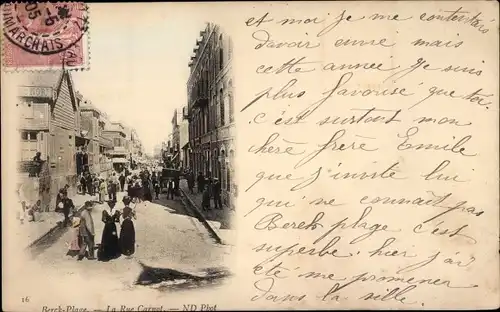 et moi je me contentais
davoir eme mais
cette année Je suis
plus favorise que toi.
c'est surtout mon
chere frère Emile
que j'invite lui
qui ne connait pas
Berck plage c'est
superbe hier j'ai
été me promener
dans la ville.
16
Berck-Plage. — La Rue Carnot. — ND Phot